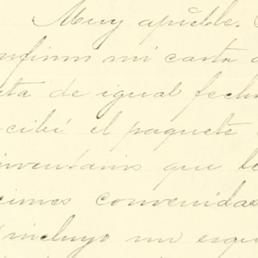 Muy apible.
onfirmo mi carta
ta de igual fech
cibí el paquete
inventario que le
ciones convenidas
incluyo un esqu